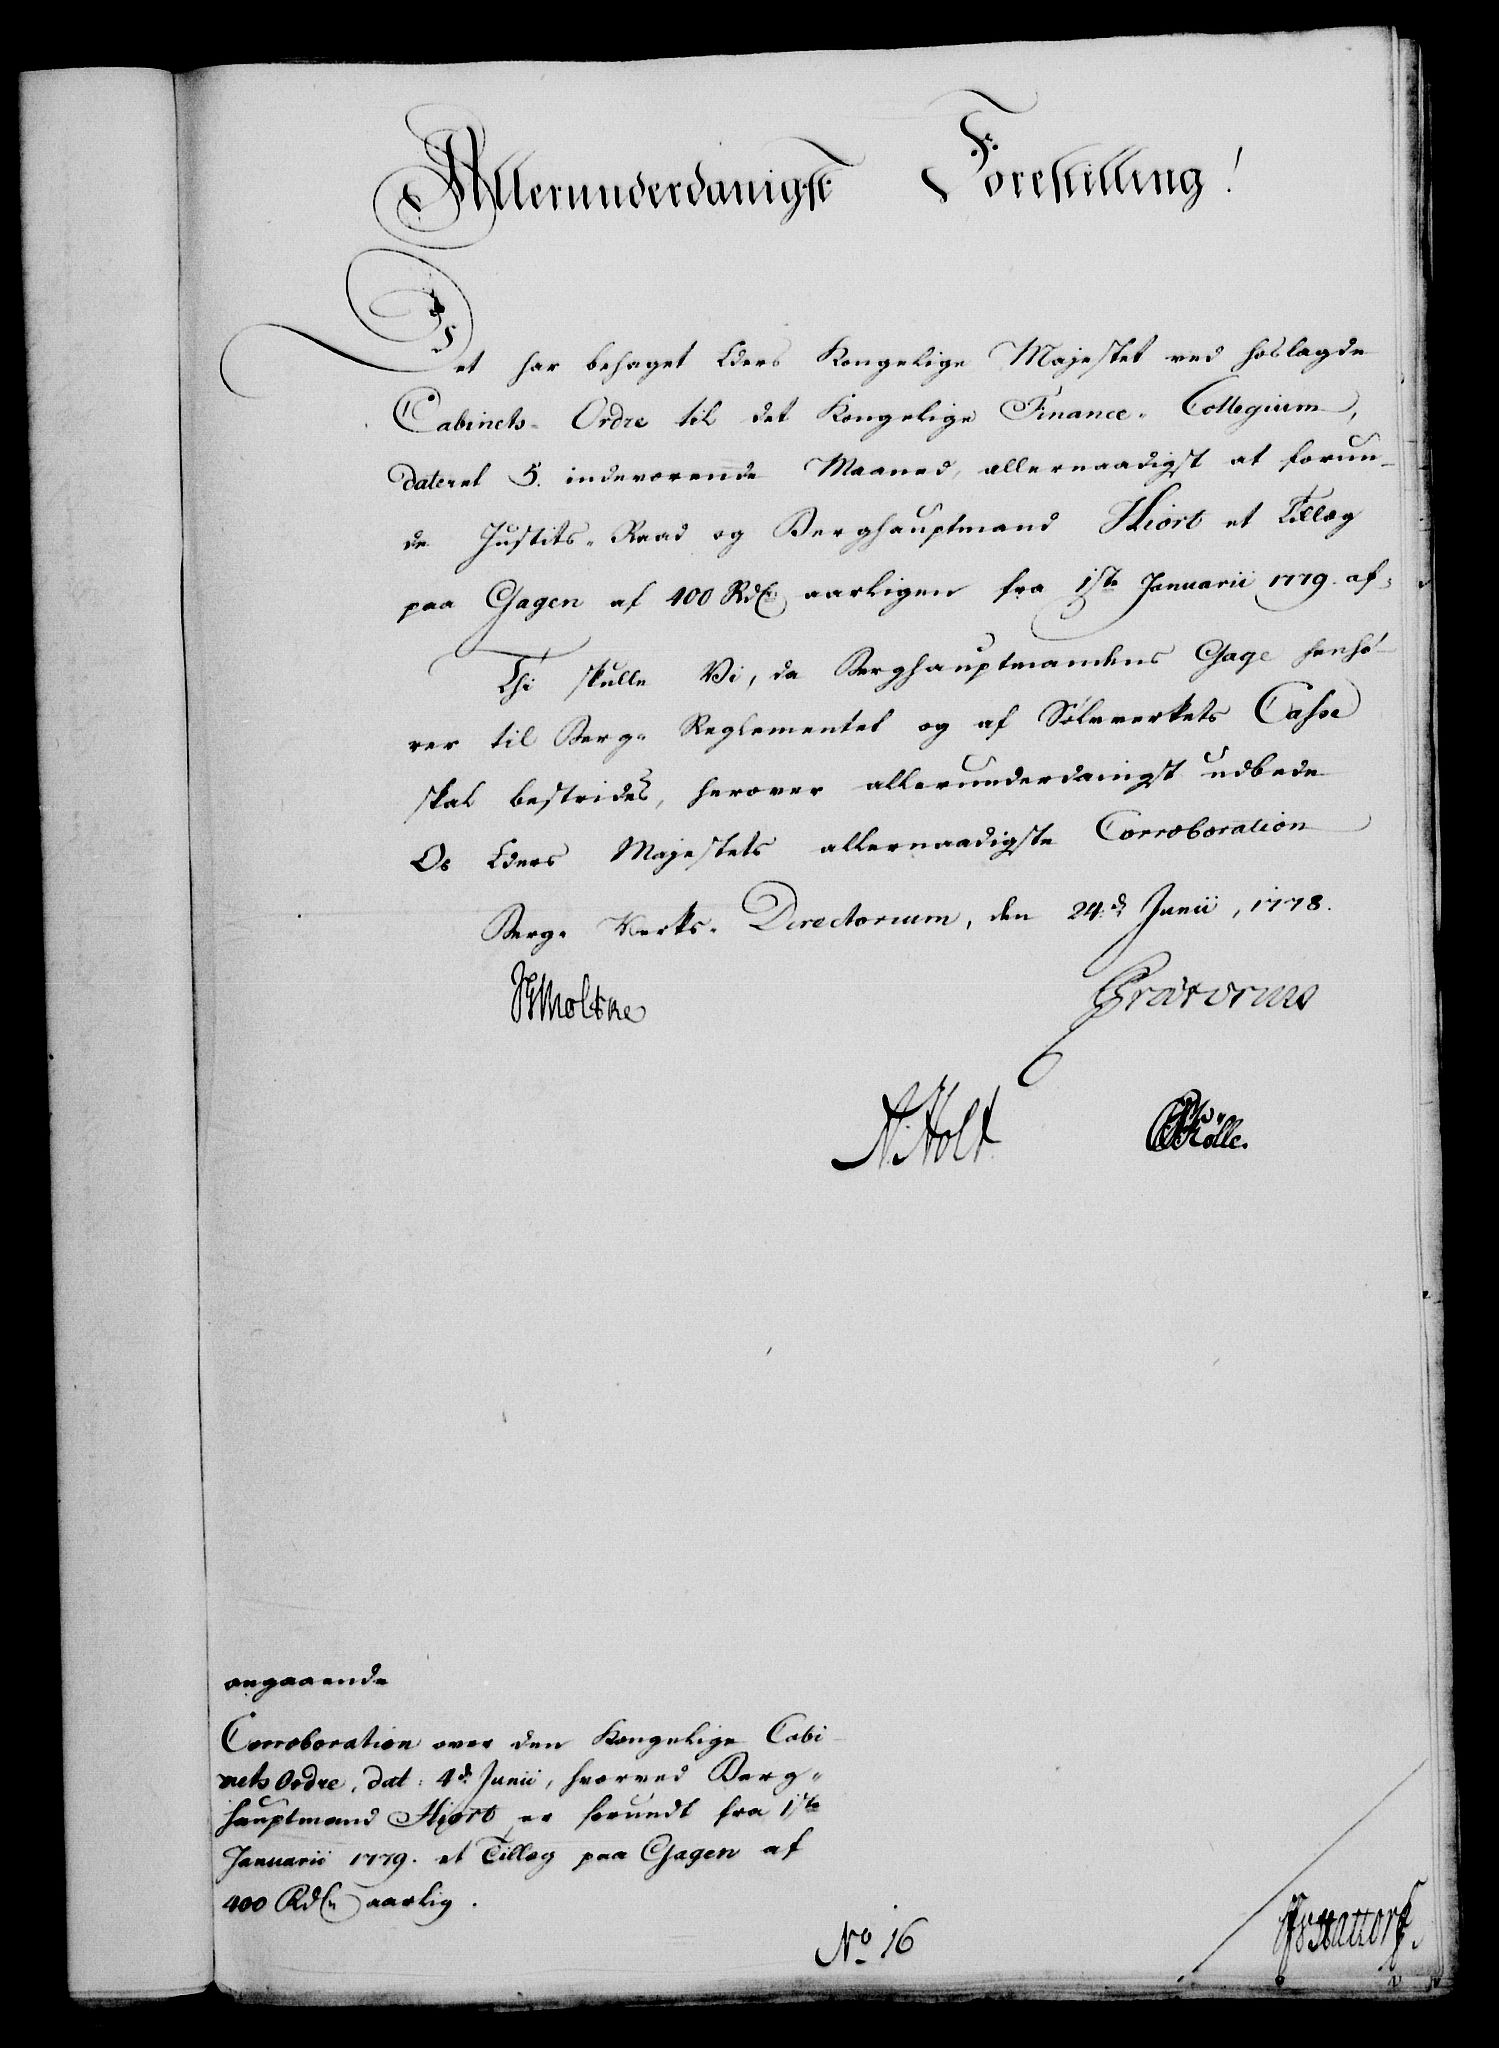 Allerunderdanigst Forestilling!
Det har behaget Eders Kongelige Majestet ved hoslagde
Cabinets- Ordre til det Kongelige Finance- Collegium,
dateret 5. indeværende Maaned, allernaadigst at forun-
de Justits- Raad og Berghauptmand Hiort et Tillæg
paa Gagen af 400 Rdlr aarligen fra 1ste Januarii 1779. af:
Thi skulle Vi, da Berghauptmandens Gage henhø-
rer til Berg- Reglementet og af Sølvverkets Casse
skal bestrides, herover allerunderdanigst udbede
Os Eders Majestets allernaadigste Corroboration
Berg- Verks- Directorium, den 24.d Junii, 1778.
Moltke Prætorius
N. Holt
angaaende
Corroboration over den Kongelige Cabi-
nets Ordre, dat: 4d. Junii, hvorved Berg-
hauptmand Hiort er forundt fra 1ste
Januarii 1779. et Tillæg paa Gagen af
400 Rdlr aarlig.
No 16